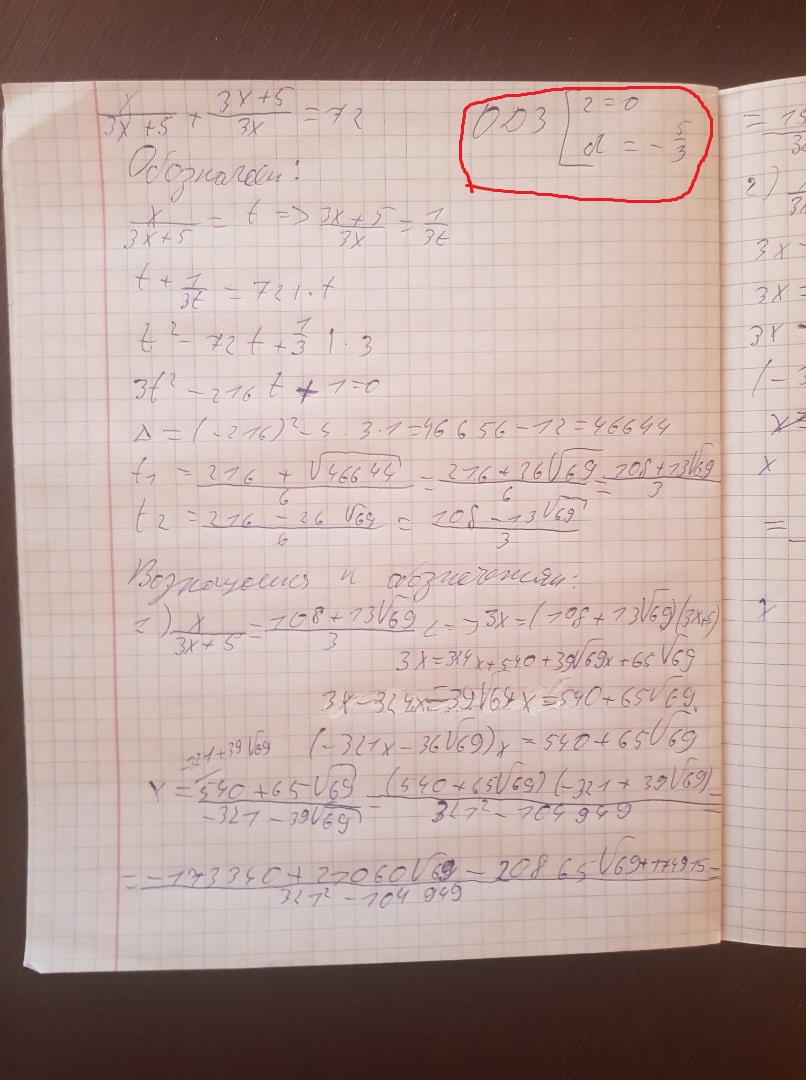 x/(3x+5) + (3x+5)/3x = 72
ОДЗ [ 2 = 0
d = -5/3
Обозначаем:
x/(3x+5) = t => (3x+5)/3x = 1/3t
t + 1/3t = 72 | · t
t² - 72t + 1/3 | · 3
3t² - 216t + 1 = 0
Δ = (-216)² - 4 · 3 · 1 = 46656 - 12 = 46644
t₁ = (216 + √46644)/6 = (216 + 26√69)/6 = (108 + 13√69)/3
t₂ = (216 - 26√69)/6 = (108 - 13√69)/3
1) x/(3x+5) = (108 + 13√69)/3 <=> 3x = (108 + 13√69)(3x+5)
3x = 324x + 540 + 39√69x + 65√69
3x - 324x - 39√69x = 540 + 65√69
(-321x - 36√69)x = 540 + 65√69
321 + 39√69
x = (540 + 65√69)/(-321 - 39√69) = (540 + 65√69)(-321 + 39√69)/(321² - 104949) =
= (-173340 + 21060√69 - 20865√69 + 174915)/(321² - 104949) =
2)
3x
3x =
3x -
x
=
x